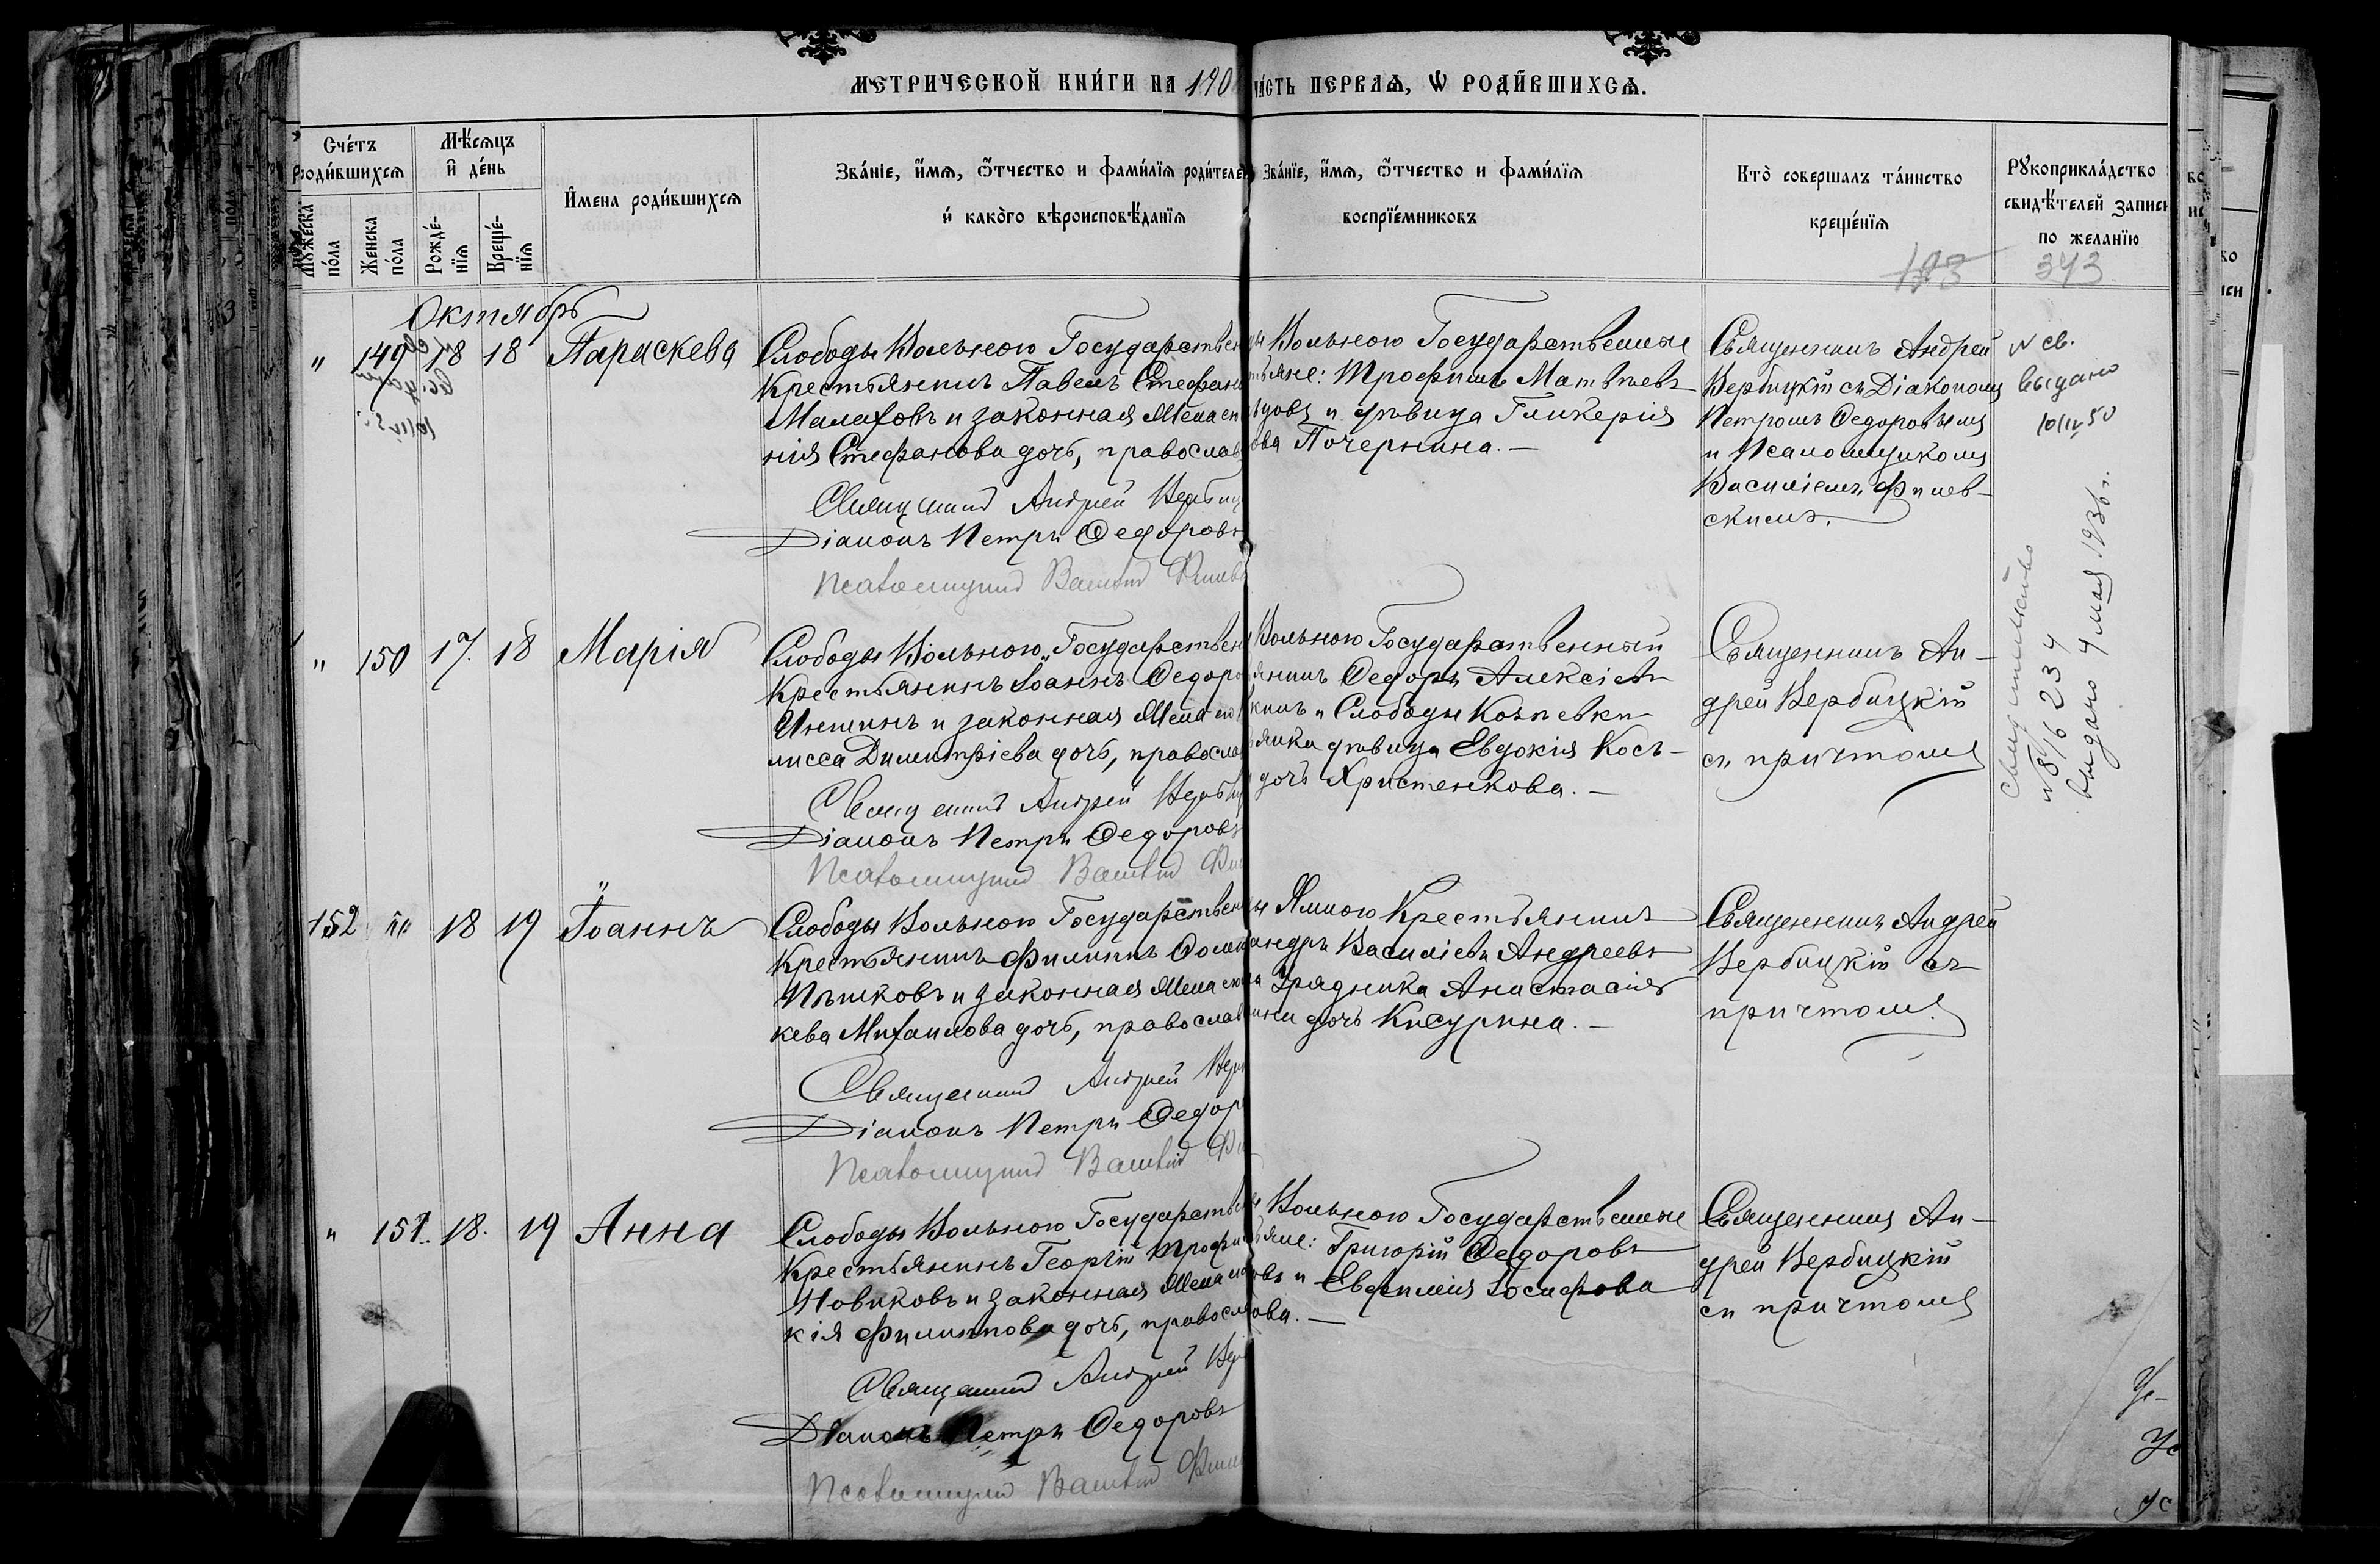 МЕТРИЧЕСКОЙ КНИ́ГИ НА 190 ЧА́СТЬ ПЕРВАѦ, Ѡ РОДИ́ВШИХСѦ.
Сче́тъ роди́вшихсѧ
Мѣ́сѧцъ и҆ де́нь
Мꙋ́жеска по́ла
Же́нска по́ла
Рожде́-нїѧ
Креще́-нїѧ
И҆мена роди́вшихсѧ
Зва́нїе, и҆́мѧ, ѻ҆́тчество и фами́лїѧ роди́теле
и҆ како́гѡ вѣроисповѣ́данїѧ
Зва́нїе, и҆́мѧ, ѻ҆́тчество и фами́лїѧ
воспрїе́мниковъ
Кто̀ соверша́лъ та́инство
креще́нїѧ
Рꙋкоприкла́дство
свидѣ́телей записи
по жела́нїю
343
Октябрь
" 149 18 18 Параскева
Слободы Вольного Государствен
крестьянинъ Павелъ Стефан
Малаховъ и законная жена е
нія Стефанова дочь, православ
Священник Андрей Вербиц
Діаконъ Петръ Ѳедоровъ
Псаломщик Василий Филев
Вольного Государственные
яне: Трофимъ Матвѣевъ
и дѣвица Гликерія
ова Почернина. —
Священникъ Андрей
Вербицкій съ Діакономъ
Петромъ Ѳедоровымъ
и Псаломщикомъ
Василіемъ Филев-
скимъ.
№ св.
выдано
10/IV 50
" 150 17. 18 Марія
Слободы Вольного, Государствен
крестьянинъ Іоаннъ Ѳедоро
и законная жена ег
лисса Димитріева дочь, правосла
Священник Андрей Вербиц
Діаконъ Петръ Ѳедоровъ
Псаломщик Василий Фи
Вольного Государственный
янинъ Ѳедоръ Алексіевъ
кинъ и Слободы
янка дѣвица Евдокія Кось-
дочь Христенкова. —
Священникъ Ан-
дрей Вербицкій
съ причтомъ
Свидетельство
№ 876234
выдано 4 мая 1936 г.
152 " 18 19 Іоаннъ
Слободы Вольного Государствен
крестьянинъ Филиппъ
и законная жена ег
кева Михаилова дочь, православ
Священник Андрей Вер
Діаконъ Петръ Ѳедор
Псаломщик Василий Фи
Ямного Крестьянинъ
андръ Василіевъ Андреевъ
Урядника Анастасія
дочь Кисурина. —
Священникъ Андрей
Вербицкій съ
причтомъ.
" 151. 18. 19 Анна
Слободы Вольного Государстве
крестьянинъ Георгій Трофи
Новиковъ и законная жена
кія Филиппова дочь, правосл
Священник Андрей Вер
Діаконъ Петръ Ѳедоровъ
Псаломщик Василий Филе
Вольного Государственные
яне: Григорій Ѳедоровъ
овъ и Евфимія Іосифова
ова. —
Священникъ Ан-
дрей Вербицкій
съ причтомъ